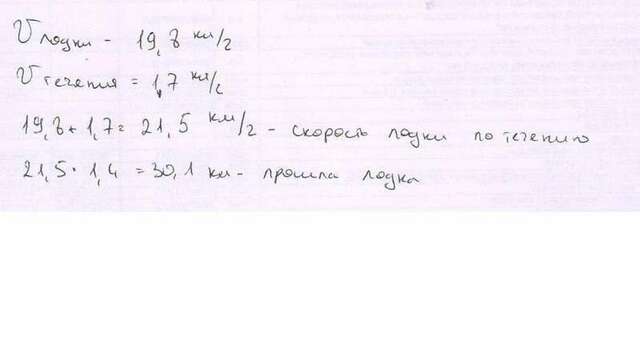 V лодки - 19,8 км/г
V течения = 1,7 км/г
19,8 + 1,7 = 21,5 км/г - скорость лодки по течению
21,5 · 1,4 = 30,1 км - прошла лодка